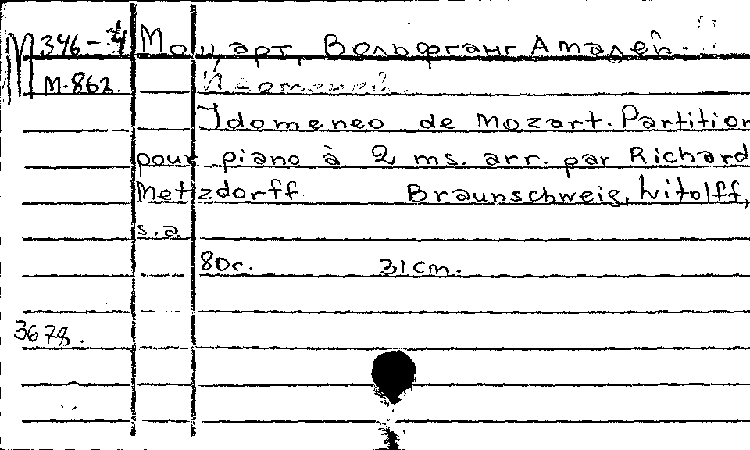 М 346-4 Моцарт, Вольфганг Амадей.
М-862 Идоменей
Idomeneo de Mozart. Partition
pour piano à 2 ms. arr. par Richard
Metzdorff Braunschweig, Litolff,
s.a.
80с. 31cm.
3678.